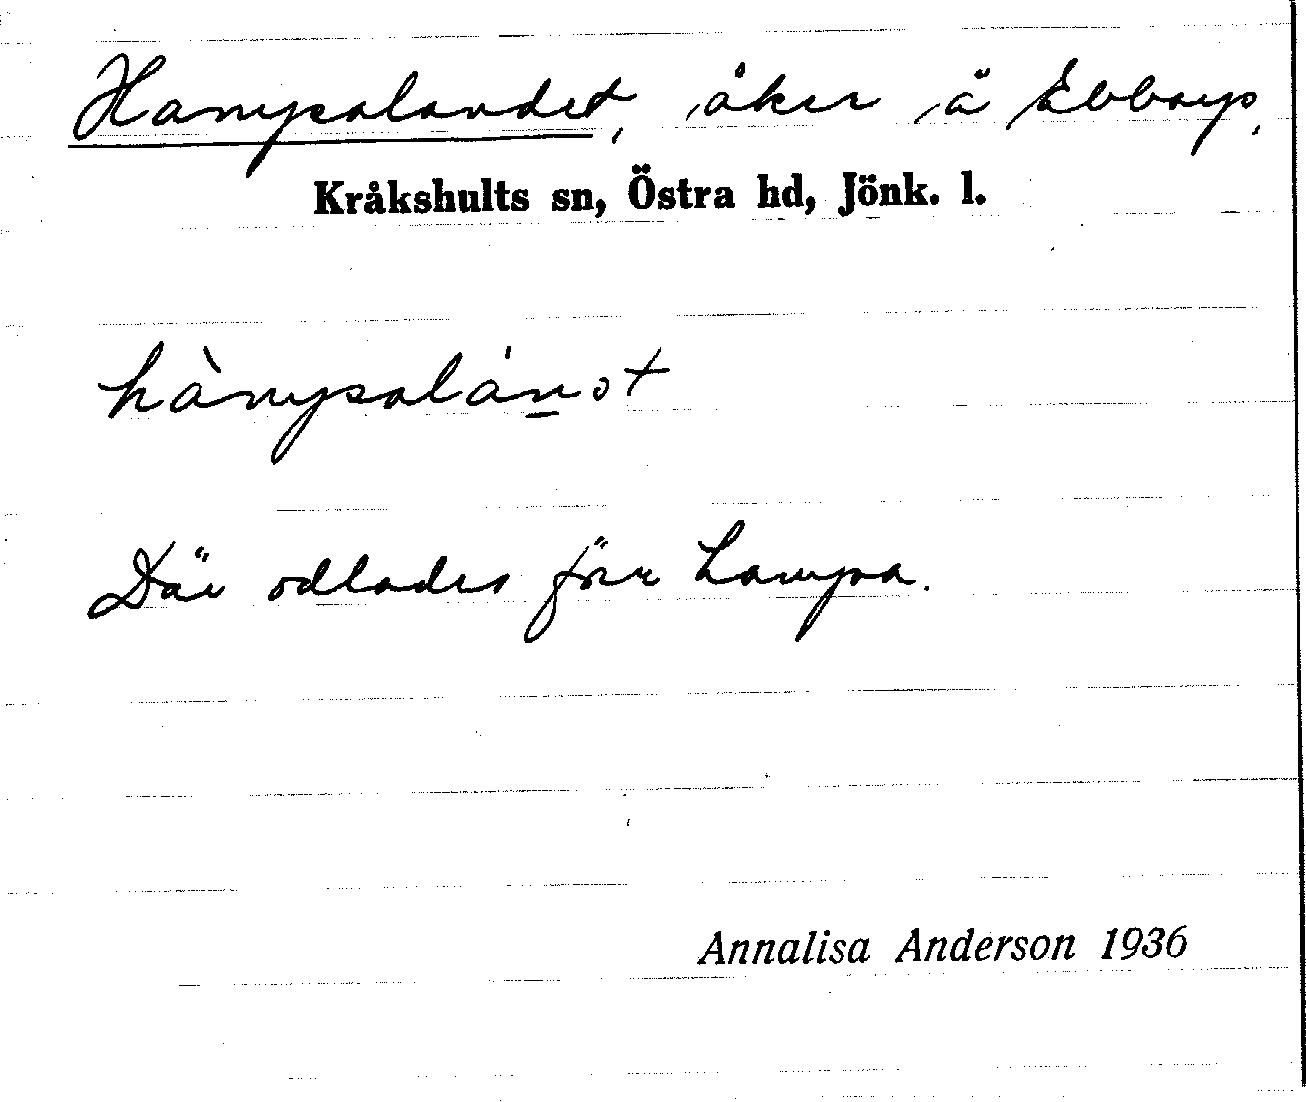 Hampalandet, åker å Ebbarp,
Kråkshults sn, Östra hd, Jönk. l.
hàmpalánət
Där odlades förr hampa.
Annalisa Anderson 1936